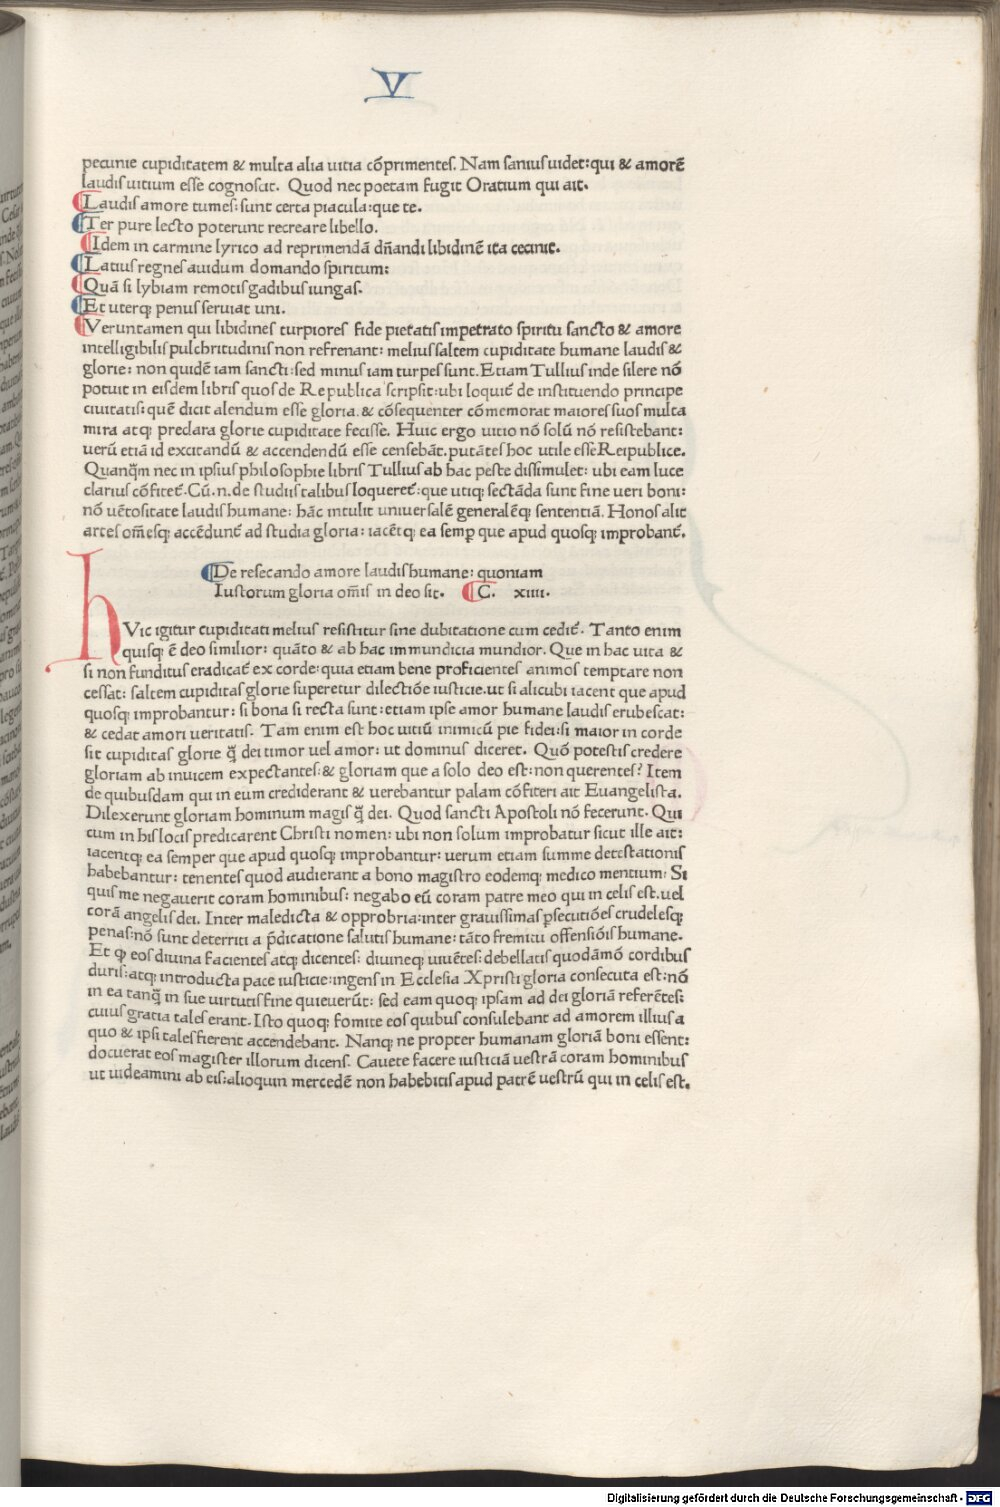 V
pecunie cupiditatem & multa alia uitia cōprimentes. Nam sanius uidet: qui & amorē
laudis uitium esse cognoscit. Quod nec poetam fugit Oratium qui ait.
Laudis amore tumes: sunt certa piacula: que te.
Ter pure lecto poterunt recreare libello.
Idem in carmine lyrico ad reprimendā dn̄andi libidinē ita cecinit.
Latius regnes auidum domando spiritum:
Quā si lybiam remotis gadibus iungas.
Et uterqꝫ penus seruiat uni.
Veruntamen qui libidines turpiores fide pietatis impetrato spiritu sancto & amore
intelligibilis pulchritudinis non refrenant: melius saltem cupiditate humane laudis &
glorie: non quidē iam sancti: sed minus iam turpes sunt. Etiam Tullius inde silere nō
potuit in eisdem libris quos de Republica scripsit: ubi loquit̄ de instituendo principe
ciuitatis: quē dicit alendum esse gloria. & cōsequenter cōmemorat maiores suos multa
mira atqꝫ preclara glorie cupiditate fecisse. Huic ergo uitio nō solū nō resistebant:
uerū etiā id excitandū & accendendū esse censebāt. putātes hoc utile esse Reipublice.
Quanqꝫ̄ nec in ipsius philosophie libris Tullius ab hac peste dissimulet: ubi eam luce
clarius cōfitet̄. Cū .n. de studiis talibus loqueret̄: que utiqꝫ sectāda sunt fine ueri boni:
nō uētositate laudis humane: hāc intulit uniuersalē generalēqꝫ sententiā. Honos alit
artes om̄esqꝫ accēdunt̄ ad studia gloria: iacētqꝫ ea semꝑ que apud quosqꝫ improbant̄.
De resecando amore laudis humane: quoniam
Iustorum gloria om̄is in deo sit. C. xiiii.
hVic igitur cupiditati melius resistitur sine dubitatione cum cedit̄. Tanto enim
quisqꝫ ē deo similior: quāto & ab hac immundicia mundior. Que in hac uita &
si non funditus eradicat̄ ex corde: quia etiam bene proficientes animos temptare non
cessat: saltem cupiditas glorie superetur dilectiōe iusticie. ut si alicubi iacent que apud
quosqꝫ improbantur: si bona si recta sunt: etiam ipse amor humane laudis erubescat:
& cedat amori ueritatis. Tam enim est hoc uitiū inimicū pie fidei: si maior in corde
sit cupiditas glorie qꝫ̄ dei timor uel amor: ut dominus diceret. Quō potestis credere
gloriam ab inuicem expectantes: & gloriam que a solo deo est: non querentes? Item
de quibusdam qui in eum crediderant & uerebantur palam cōfiteri ait Euangelista.
Dilexerunt gloriam hominum magis qꝫ̄ dei. Quod sancti Apostoli nō fecerunt. Qui
cum in his locis predicarent Christi nomen: ubi non solum improbatur sicut ille ait:
iacentqꝫ ea semper que apud quosqꝫ improbantur: uerum etiam summe detestationis
habebantur: tenentes quod audierant a bono magistro eodemqꝫ medico mentium: Si
quis me negauerit coram hominibus: negabo eū coram patre meo qui in celis est. uel
corā angelis dei. Inter maledicta & opprobria: inter grauissimas ꝑsecutiōes crudelesqꝫ
penas: nō sunt deterriti a p̄dicatione salutis humane: tāto fremitu offensiōis humane.
Et ꝙ eos diuina facientes atqꝫ dicentes: diuineqꝫ uiuētes: debellatis quodāmō cordibus
duris: atqꝫ introducta pace iusticie: ingens in Ecclesia Xpristi gloria consecuta est: nō
in ea tanqꝫ̄ in sue uirtutis fine quieuerūt: sed eam quoqꝫ ipsam ad dei gloriā referētes:
cuius gratia tales erant. Isto quoqꝫ fomite eos quibus consulebant ad amorem illius a
quo & ipsi tales fierent accendebant. Nanqꝫ ne propter humanam gloriā boni essent:
docuerat eos magister illorum dicens. Cauete facere iusticiā uestrā coram hominibus
ut uideamini ab eis: alioquin mercedē non habebitis apud patrē uestrū qui in celis est.
Digitalisierung gefördert durch die Deutsche Forschungsgemeinschaft - DFG